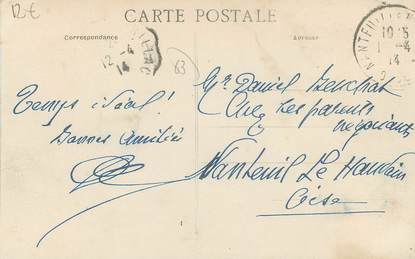 12€
CARTE POSTALE
Correspondance
Adresse
12-4
14
63
NANTEUIL
10 15
-4
14
Mr Daniel
Chez ses parents
négociants
Temps idéal !
Bonnes amitiés
Nanteuil Le Haudoin
Oise